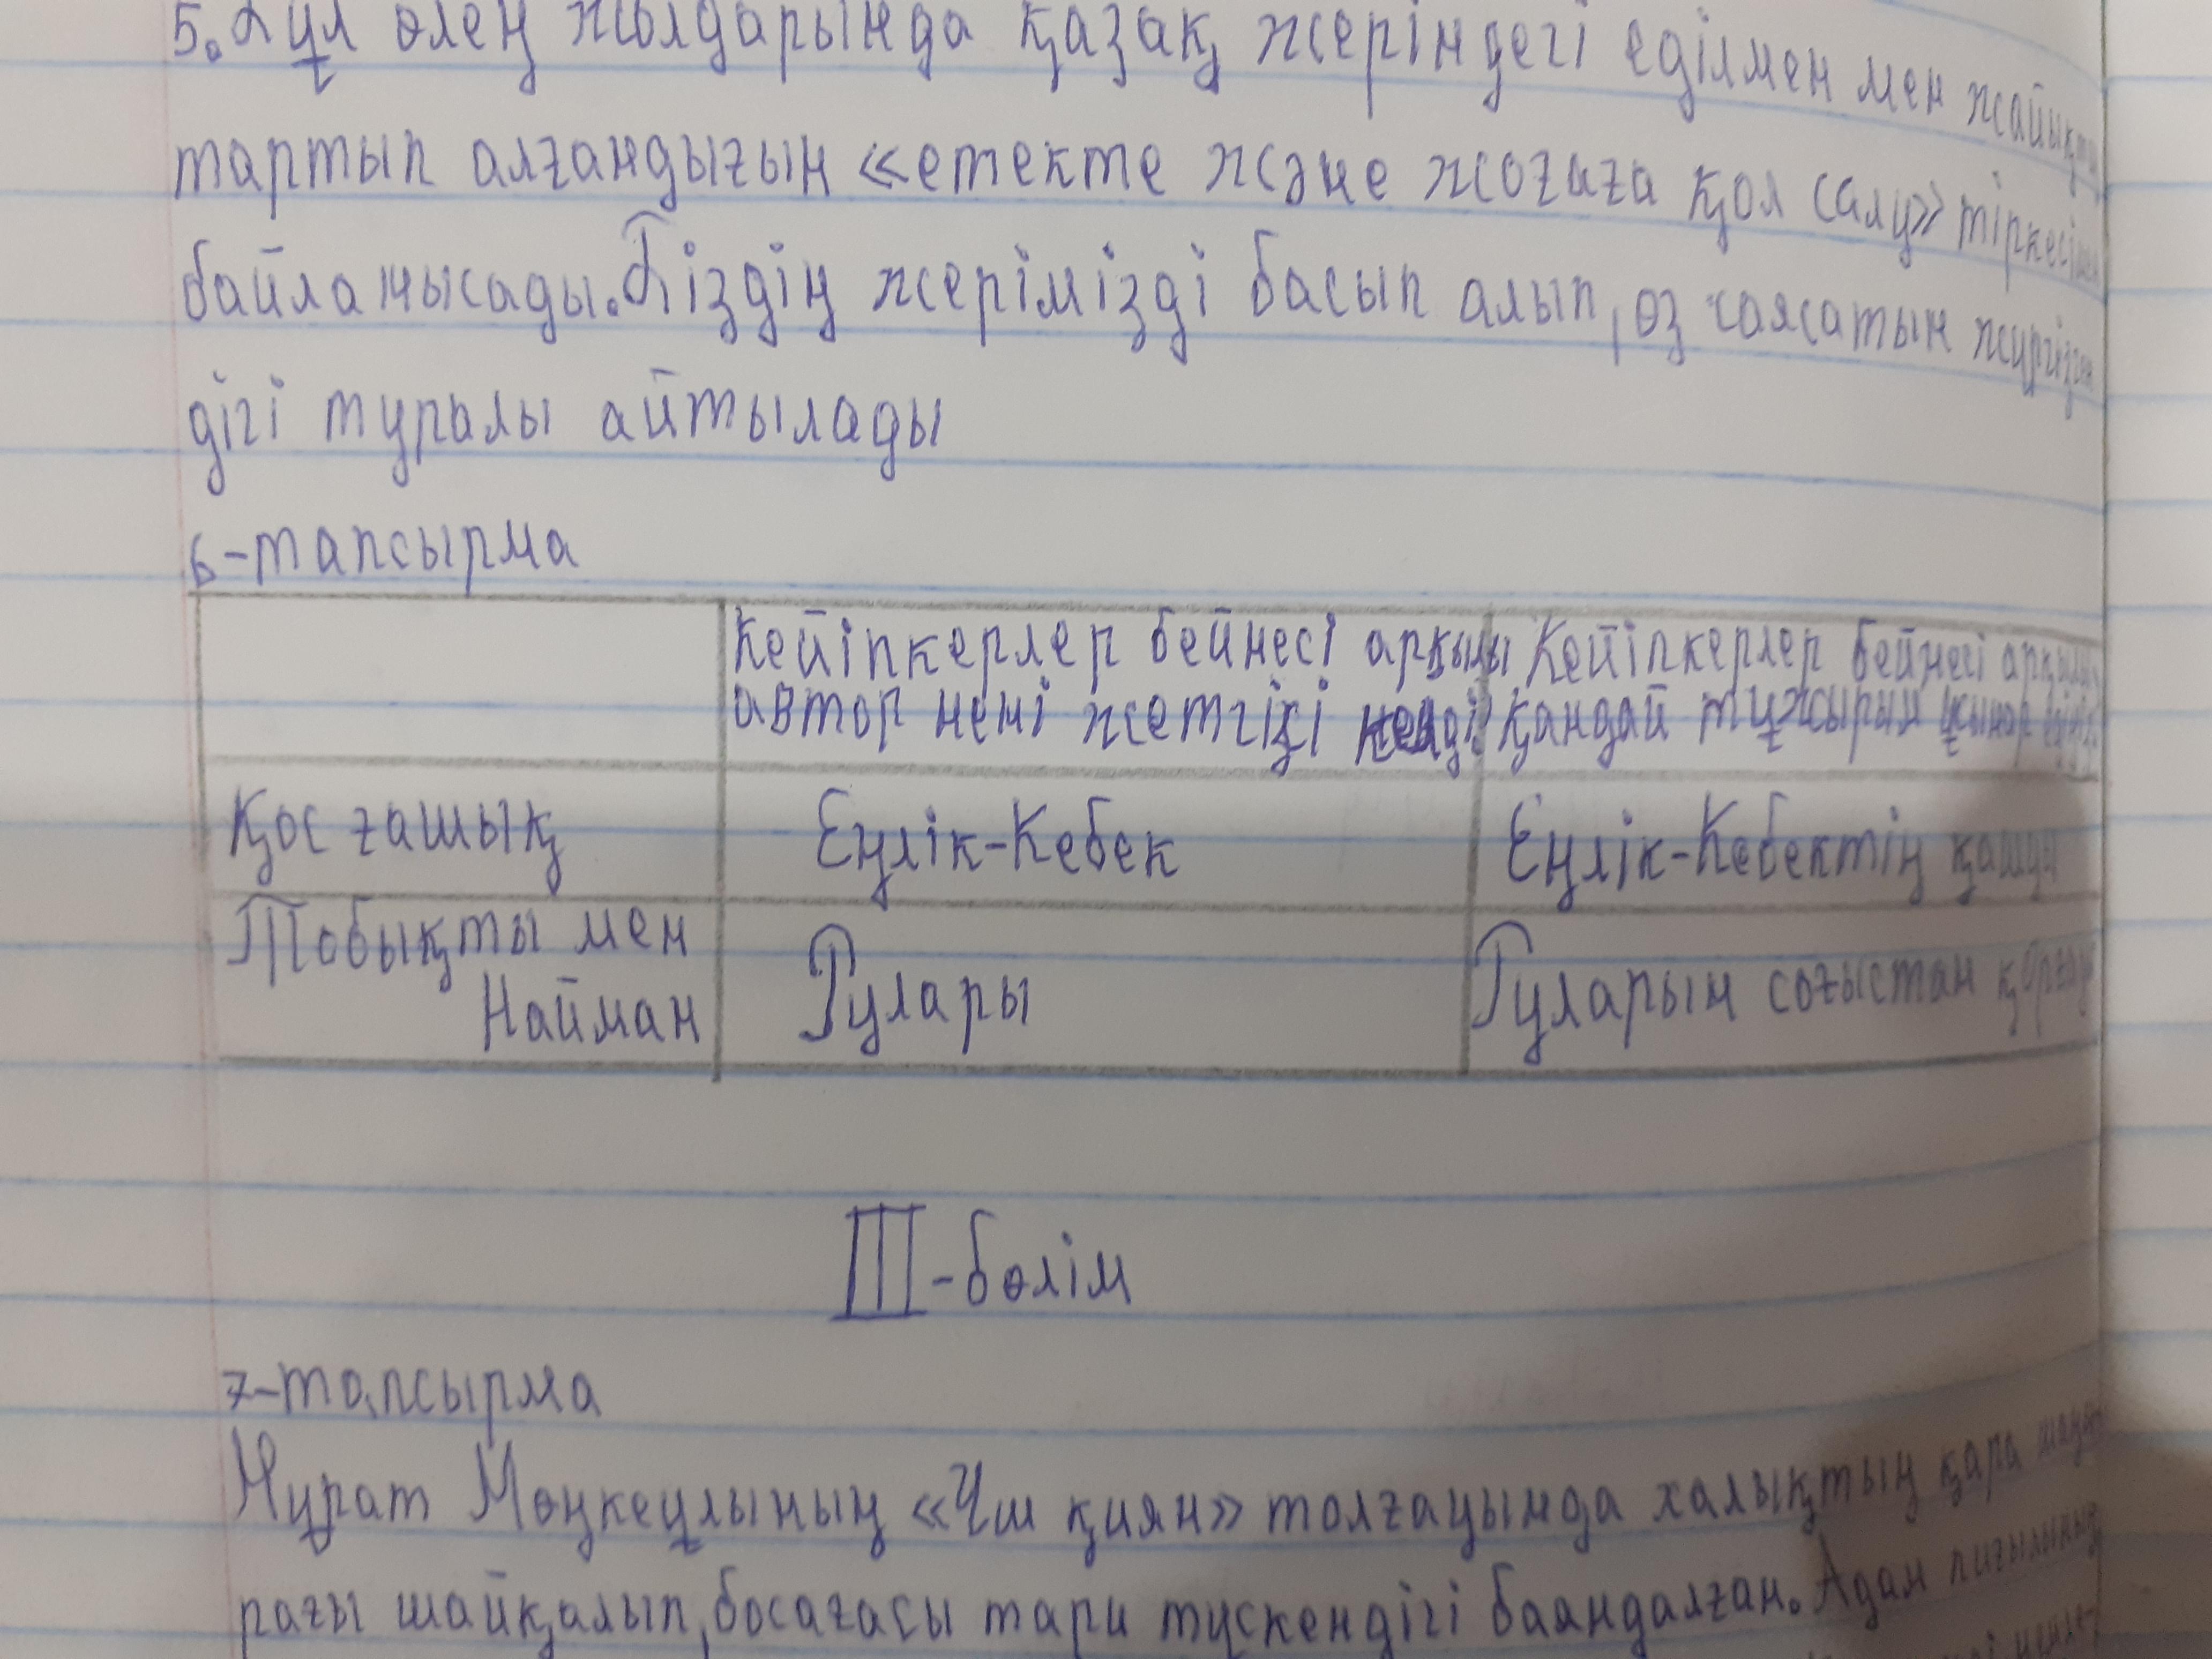 5. Бұл өлең жолдарында қазақ жеріндегі еділмен мен жайықты
тартып алғандығын «етекте және жоғаға қол салу» тіркесімен
байланысады. Біздің жерімізді басып алып, өз саясатын жүргізген
дігі туралы айтылады
6-тапсырма
Кейіпкерлер бейнесі арқылы
автор нені жеткізгі келді?
Кейіпкерлер бейнесі арқылы
қандай тұжырым ұсынар едіңіз
Қос ғашық
Еңлік-Кебек
Еңлік-Кебектің қашуы
Тобықты мен
Найман
Рулары
Руларын соғыстан қорғау
III-бөлім
7-тапсырма
Мұрат Мөңкеұлының «Үш қиян» толғауында халықтың қара шаңы
рағы шайқалып, босағасы тари түскендігі баяндалған. Адам пиғылының